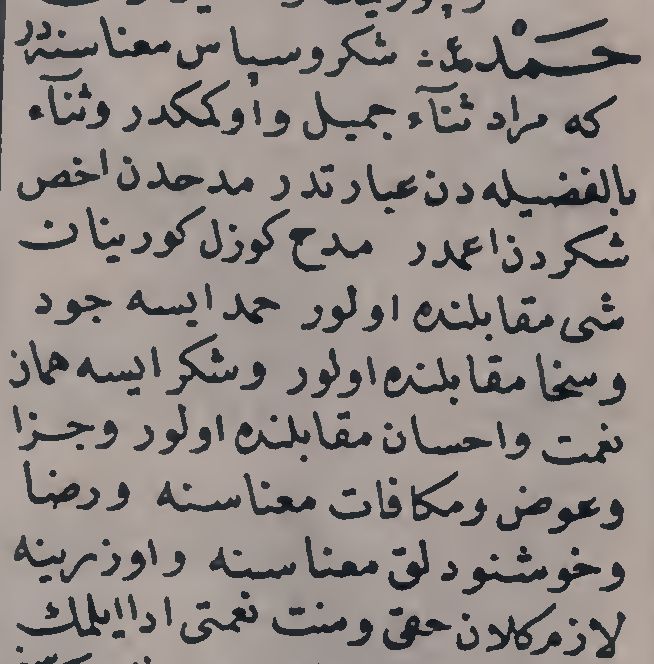 حَمْد ع شكر وسپاس معناسنه در
كه مراد ثنآء جميل واوكمكدر وثنآء
بالفضيله دن عبارتدر مدحدن اخص
شكردن اعمدر مدح كوزل كورينان
شى مقابلنده اولور حمد ايسه جود
وسخا مقابلنده اولور وشكر ايسه همان
نعمت واحسان مقابلنده اولور وجزا
وعوض ومكافات معناسنه ورضا
وخوشنودلق معناسنه واوزرينه
لازم كلان حقى ومنت نعمتى ادا ايلمك